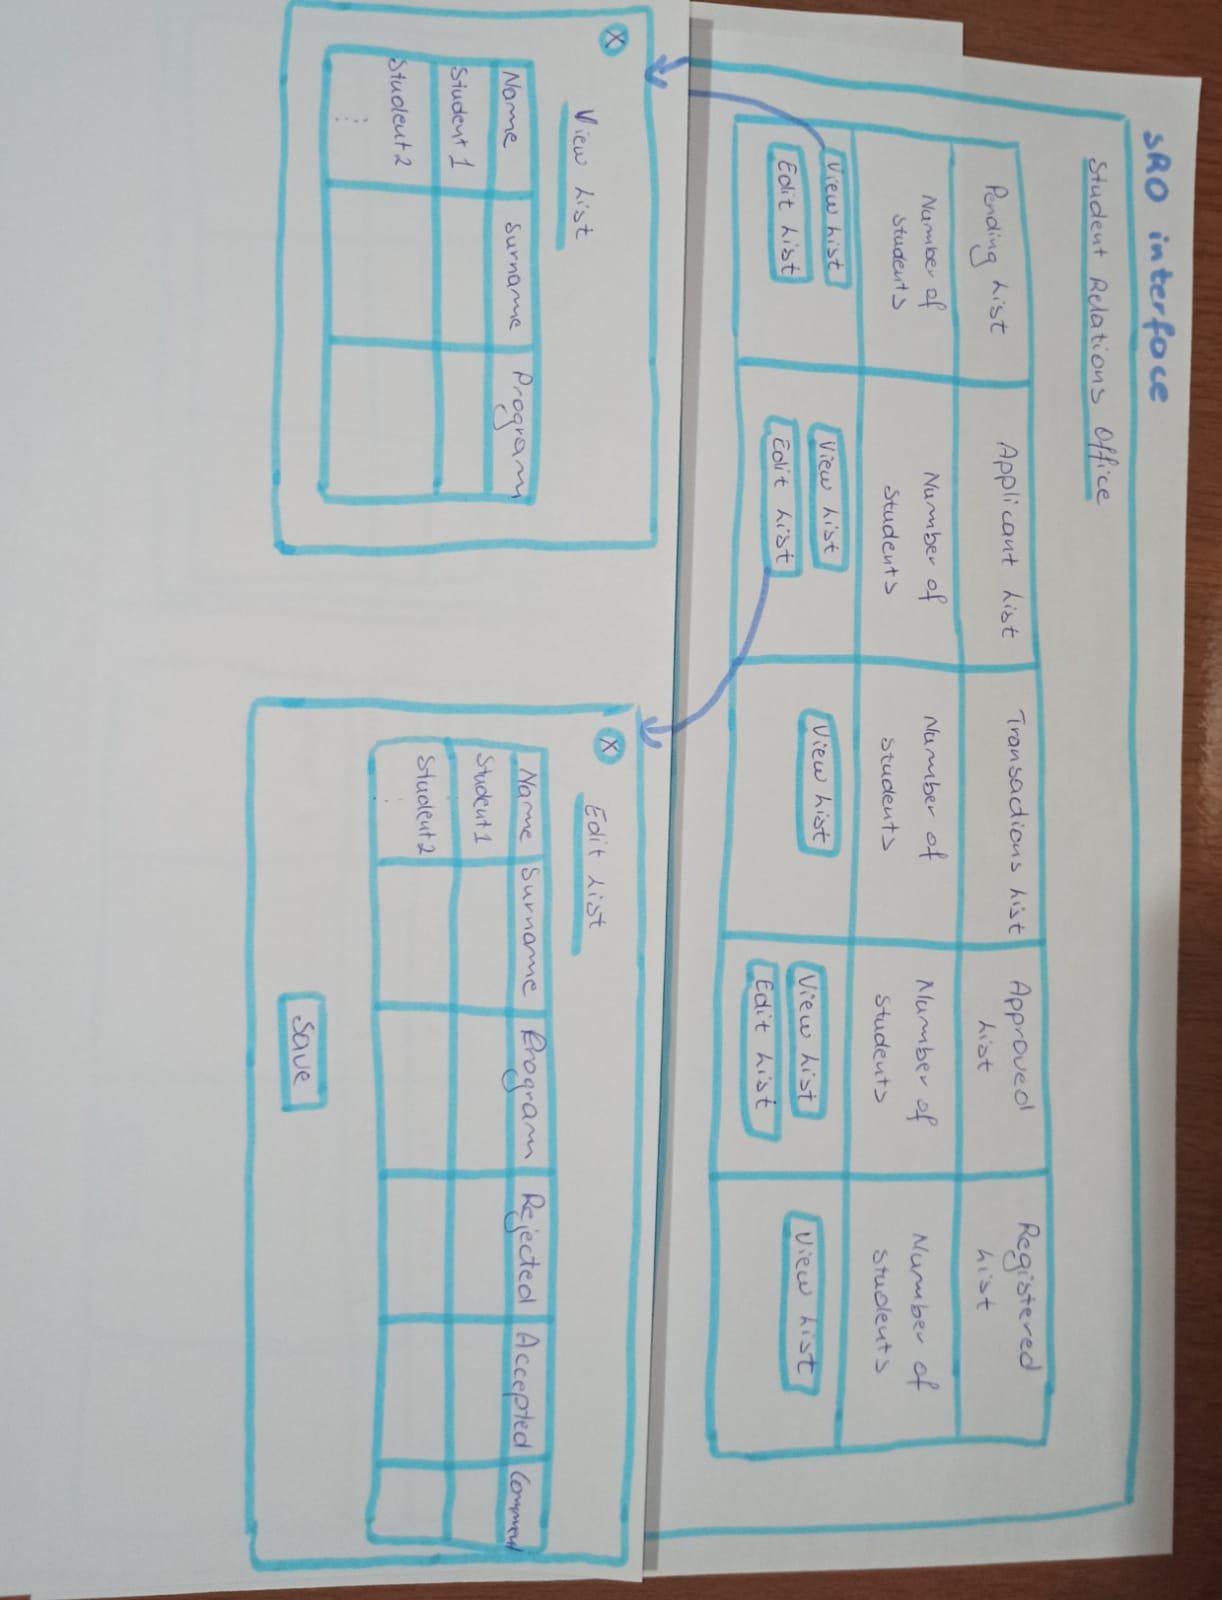 SRO interface
Student Relations Office
Pending List
Applicant List
Transactions List
Approved
List
Registered
List
Number of
students
Number of
students
Number of
students
Number of
students
Number of
students
View List
Edit List
View List
Edit List
View List
View List
Edit List
View List
X
View List
Name Surname Program
Student 1
Student 2
...
X
Edit List
Name Surname Program Rejected Accepted Comment
Student 1
Student 2
...
Save